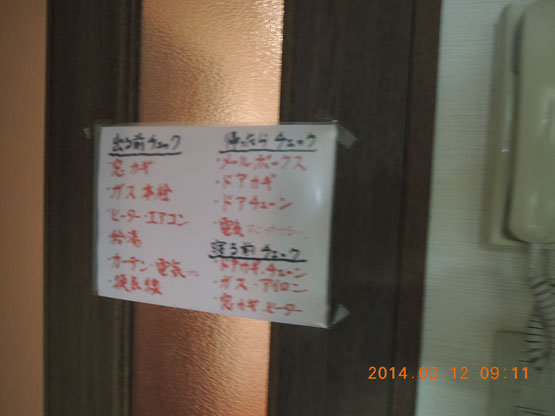 出る前チェック
・窓カギ
・ガス本栓
・ヒーター・エアコン
・給湯
・カーテン・電気
帰ったらチェック
・メールボックス
・ドアカギ
・ドアチェーン
・電気
寝る前チェック
・ドアカギ・チェーン
・ガス・アイロン
・窓カギ・ヒーター
2014.02.12 09:11